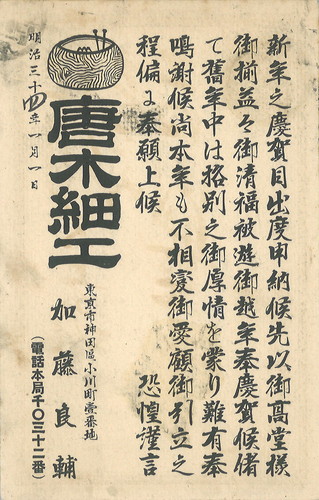 新年之慶賀目出度申納候先以御高堂様
御揃益々御清福被遊御越年奉慶賀候偖
て舊年中は格別之御厚情を蒙り難有奉
鳴謝候尚本年も不相變御愛顧御引立之
程偏に奉願上候
恐惶謹言
唐木細工
東京市神田區小川町壹番地
加藤良輔
(電話本局千〇三十二番)
明治三十四年一月一日